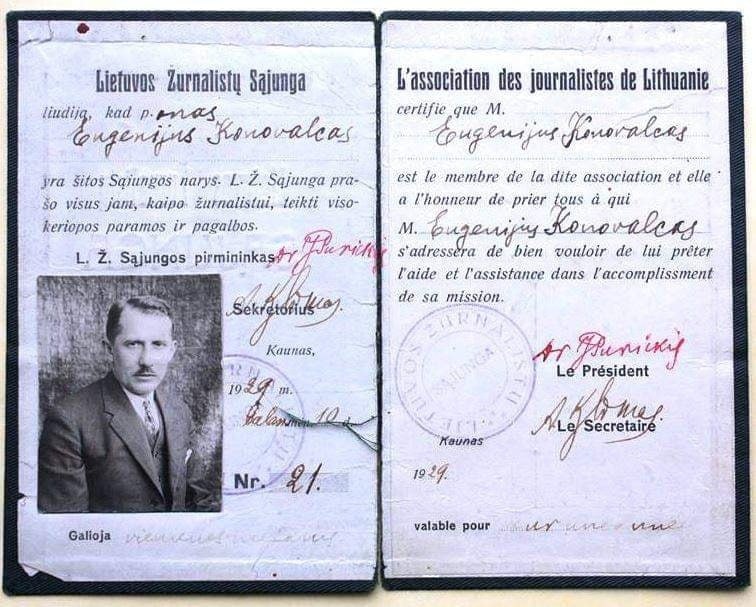 Lietuvos Žurnalistų Sąjunga
liudija, kad p. onas
Eugenijus Konovalcas
yra šitos Sąjungos narys. L. Ž. Sąjunga pra-
šo visus jam, kaipo žurnalistui, teikti viso-
keriopos paramos ir pagalbos.
L. Ž. Sąjungos pirmininkas Dr JPurickis
Sekretorius
Kaunas,
1929 m.
10 d.
Nr. 21.
Galioja vieneriems metams
L'association des journalistes de Lithuanie
certifie que M.
Eugenijus Konovalcas
est le membre de la dite association et elle
a l'honneur de prier tous à qui
M. Eugenijus Konovalcas
s'adressera de bien vouloir de lui prêter
l'aide et l'assistance dans l'accomplissment
de sa mission.
LIETUVOS ŽURNALISTŲ
SĄJUNGA
Dr JPurickis
Le Président
Le Secretaire
Kaunas
1929.
valable pour